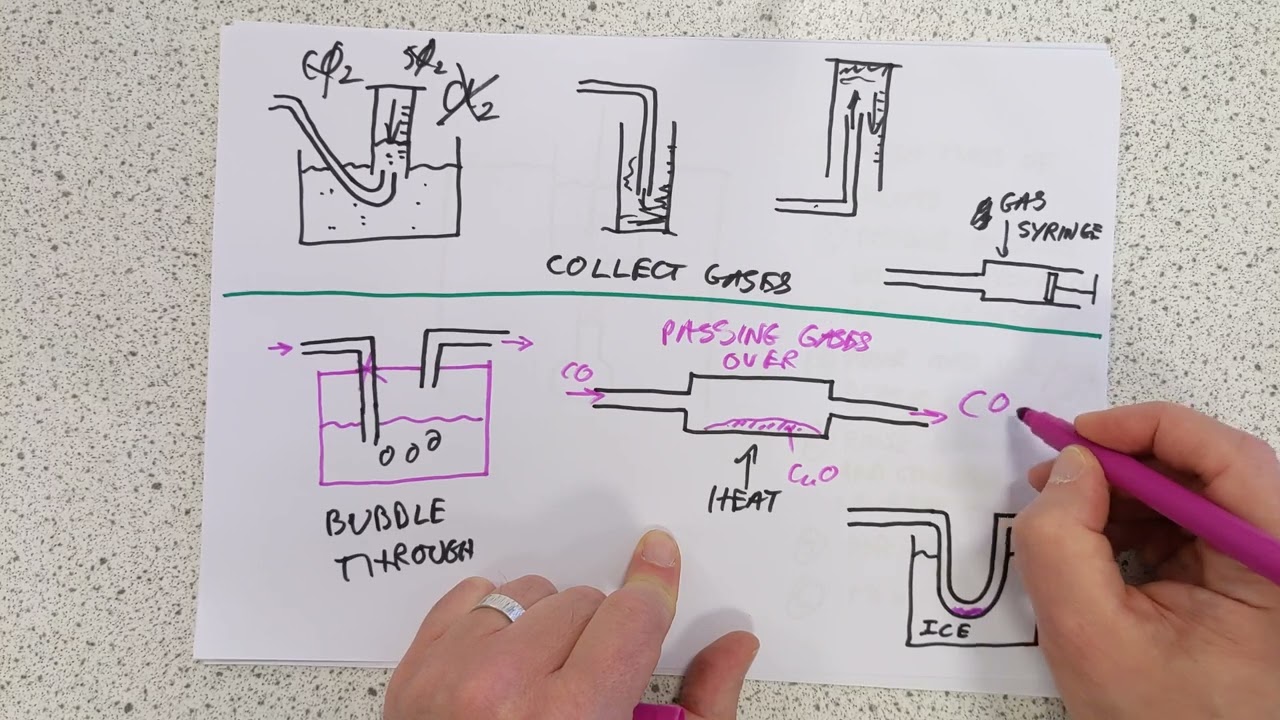 CO₂
SO₂
Cl₂
GAS
SYRINGE
COLLECT GASES
PASSING GASES
OVER
CO
CO
CuO
HEAT
BUBBLE
THROUGH
ICE